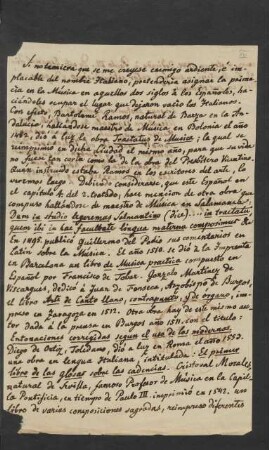 Si no temiera que se me creyese enemigo ardiente, é im-
placable del nombre Italiano, pretendería asignar la prima-
cía en la Música en aquellos dos siglos á los Españoles, ha-
ciéndoles ocupar el lugar que dejaron vacio los Italianos.
Con efecto, Bartolomé Ramos, natural de Baeza en la An-
dalucía, hallándose maestro de Música en Bolonia el año
1482, dió á luz la obra Tractatus de Musica; la qual se
reimprimió en dicha Ciudad el mismo año, para que su vida
no fuese tan corta como la de la obra del Presbítero Vicentino.
Quan instruido estaba Ramos en los escritores del arte, lo
veremos luego. Debiendo considerarse, que este Español en
el capitulo de su tratado, hace mencion de otra obra que
compuso hallándose de maestro de Música en Salamanca.
Dum in studio legeremus Salmantino (dice) in tractatu
quem ibi in hac facultate lingua materna composuimus. En
En 1495. publicó Guillermo del Podio sus comentarios en
Latin sobre la Música. El año 1510 se dió á la Imprenta
en Barcelona un libro de Música practica compuesto en
Español por Francisco de Tobar. Gonzalo Martínez de
Vizcargui, dedicó á Juan de Fonseca, Arzobispo de Burgos,
el libro Arte de Canto llano, contrapunto y de organo, im-
preso en Zaragoza en 1512. Otra obra hay de este mismo au-
tor dada á la prensa en Burgos año 1511. con el título:
Entonaciones corregidas segun el uso de los modernos.
Diego de Ortiz, Toledano, dió á luz en Roma el año 1553
una obra en lengua Italiana, intitulada: El primero
libro de las glosas sobre las cadencias. Cristoval Morales,
natural de Sevilla, famoso Profesor de Música en la Capi-
lla Pontificia, en tiempo de Paulo III. imprimió en 1542. un
libro de varias composiciones sagradas, reimpreso diferentes